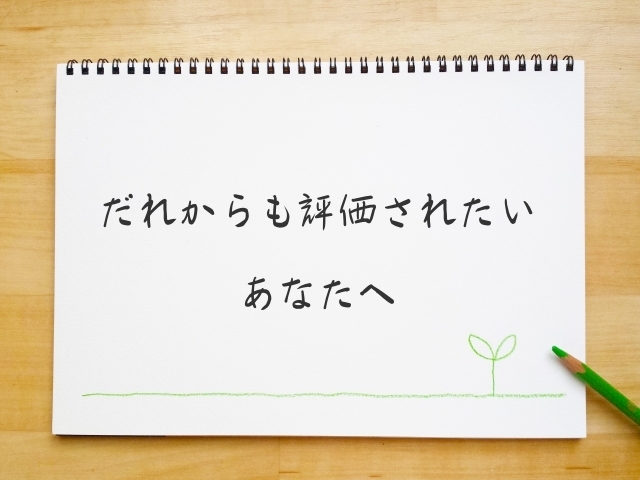 だれからも評価されたい
あなたへ